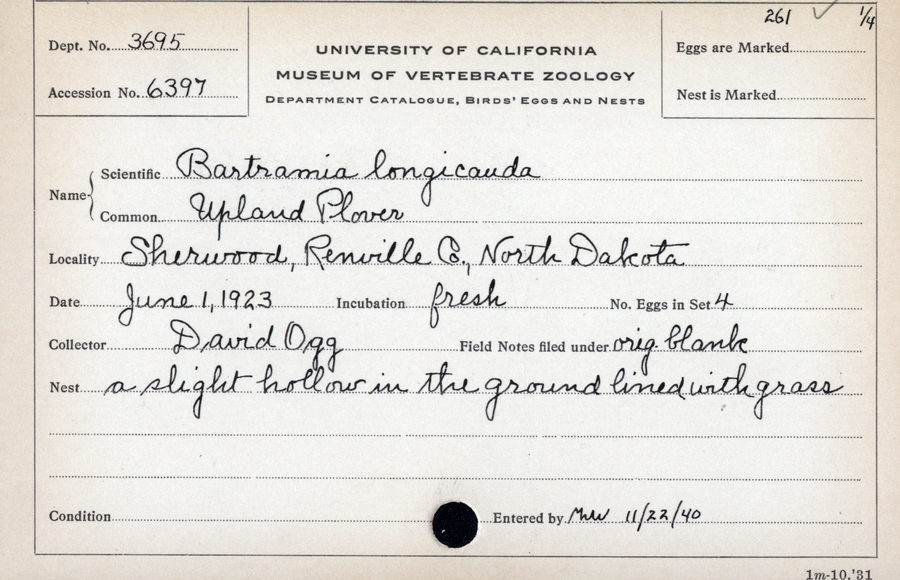 261 ✓ 1/4
Dept. No. 3695
Accession No. 6397
UNIVERSITY OF CALIFORNIA
MUSEUM OF VERTEBRATE ZOOLOGY
DEPARTMENT CATALOGUE, BIRDS' EGGS AND NESTS
Eggs are Marked
Nest is Marked
Name Scientific Bartramia longicauda
Common Upland Plover
Locality Sherwood, Renville Co., North Dakota
Date June 1, 1923 Incubation fresh No. Eggs in Set 4
Collector David Ogg Field Notes filed under orig. blank
Nest a slight hollow in the ground lined with grass
Condition Entered by 11/22/40
1m-10,'31